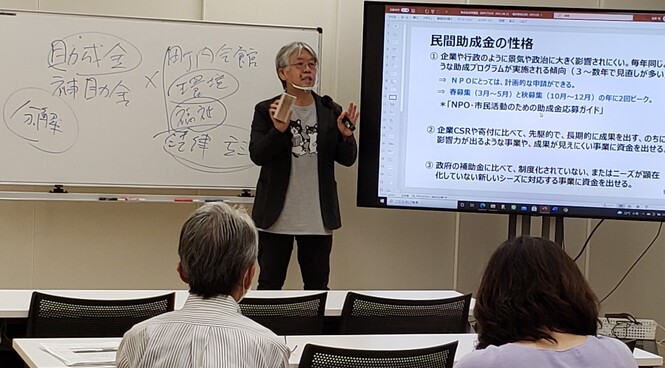 助成金
補助金
×
町内会館
環境
福祉
法律
分解
民間助成金の性格
① 企業や行政のように景気や政治に大きく影響されにくい。毎年同じよ
うな助成プログラムが実施される傾向（３～数年で見直しが多い
⇒ ＮＰＯにとっては、計画的な申請ができる。
⇒ 春募集（3月～5月）と秋募集（10月～12月）の年に2回ピーク。
＊「NPO・市民活動のための助成金応募ガイド」
② 企業CSRや寄付に比べて、先駆的で、長期的に成果を出す、のちに
影響力が出るような事業や、成果が見えにくい事業に資金を出せる。
③ 政府の補助金に比べて、制度化されていない、またはニーズが顕在
化していない新しいシーズに対応する事業に資金を出せる。